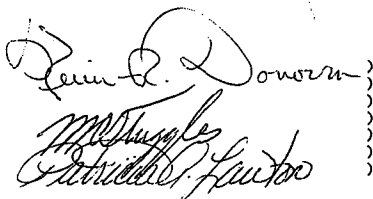 Kevin R. Donovan
McStuggles
Patricia P. Lawton